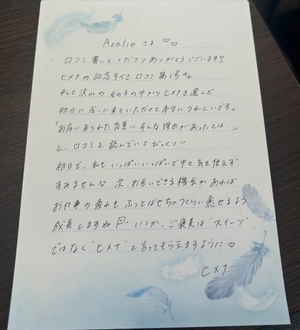 Azalie さま ♡♡
口コミ書いてくださりありがとうございます♡
ヒメナの記念すべき口コミ第1号☆
そして沢山の女の子の中からヒメナを選んで
初日に会いに来ていただけて本当にうれしいです。
「お店に来られた背景にそんな理由があったとは…」
と、口コミを読んでいてびっくり!!
初日で、私もいっぱいいっぱいで中々気を使えず
すみません 次、お会いできる機会があれば
お仕事の疲れもふっとばせちゃうくらい癒せるよう
成長しますね いつか、ご褒美は"スイーツ"
ではなく"ヒメナ"と言ってもらえますように♡
ヒメナ